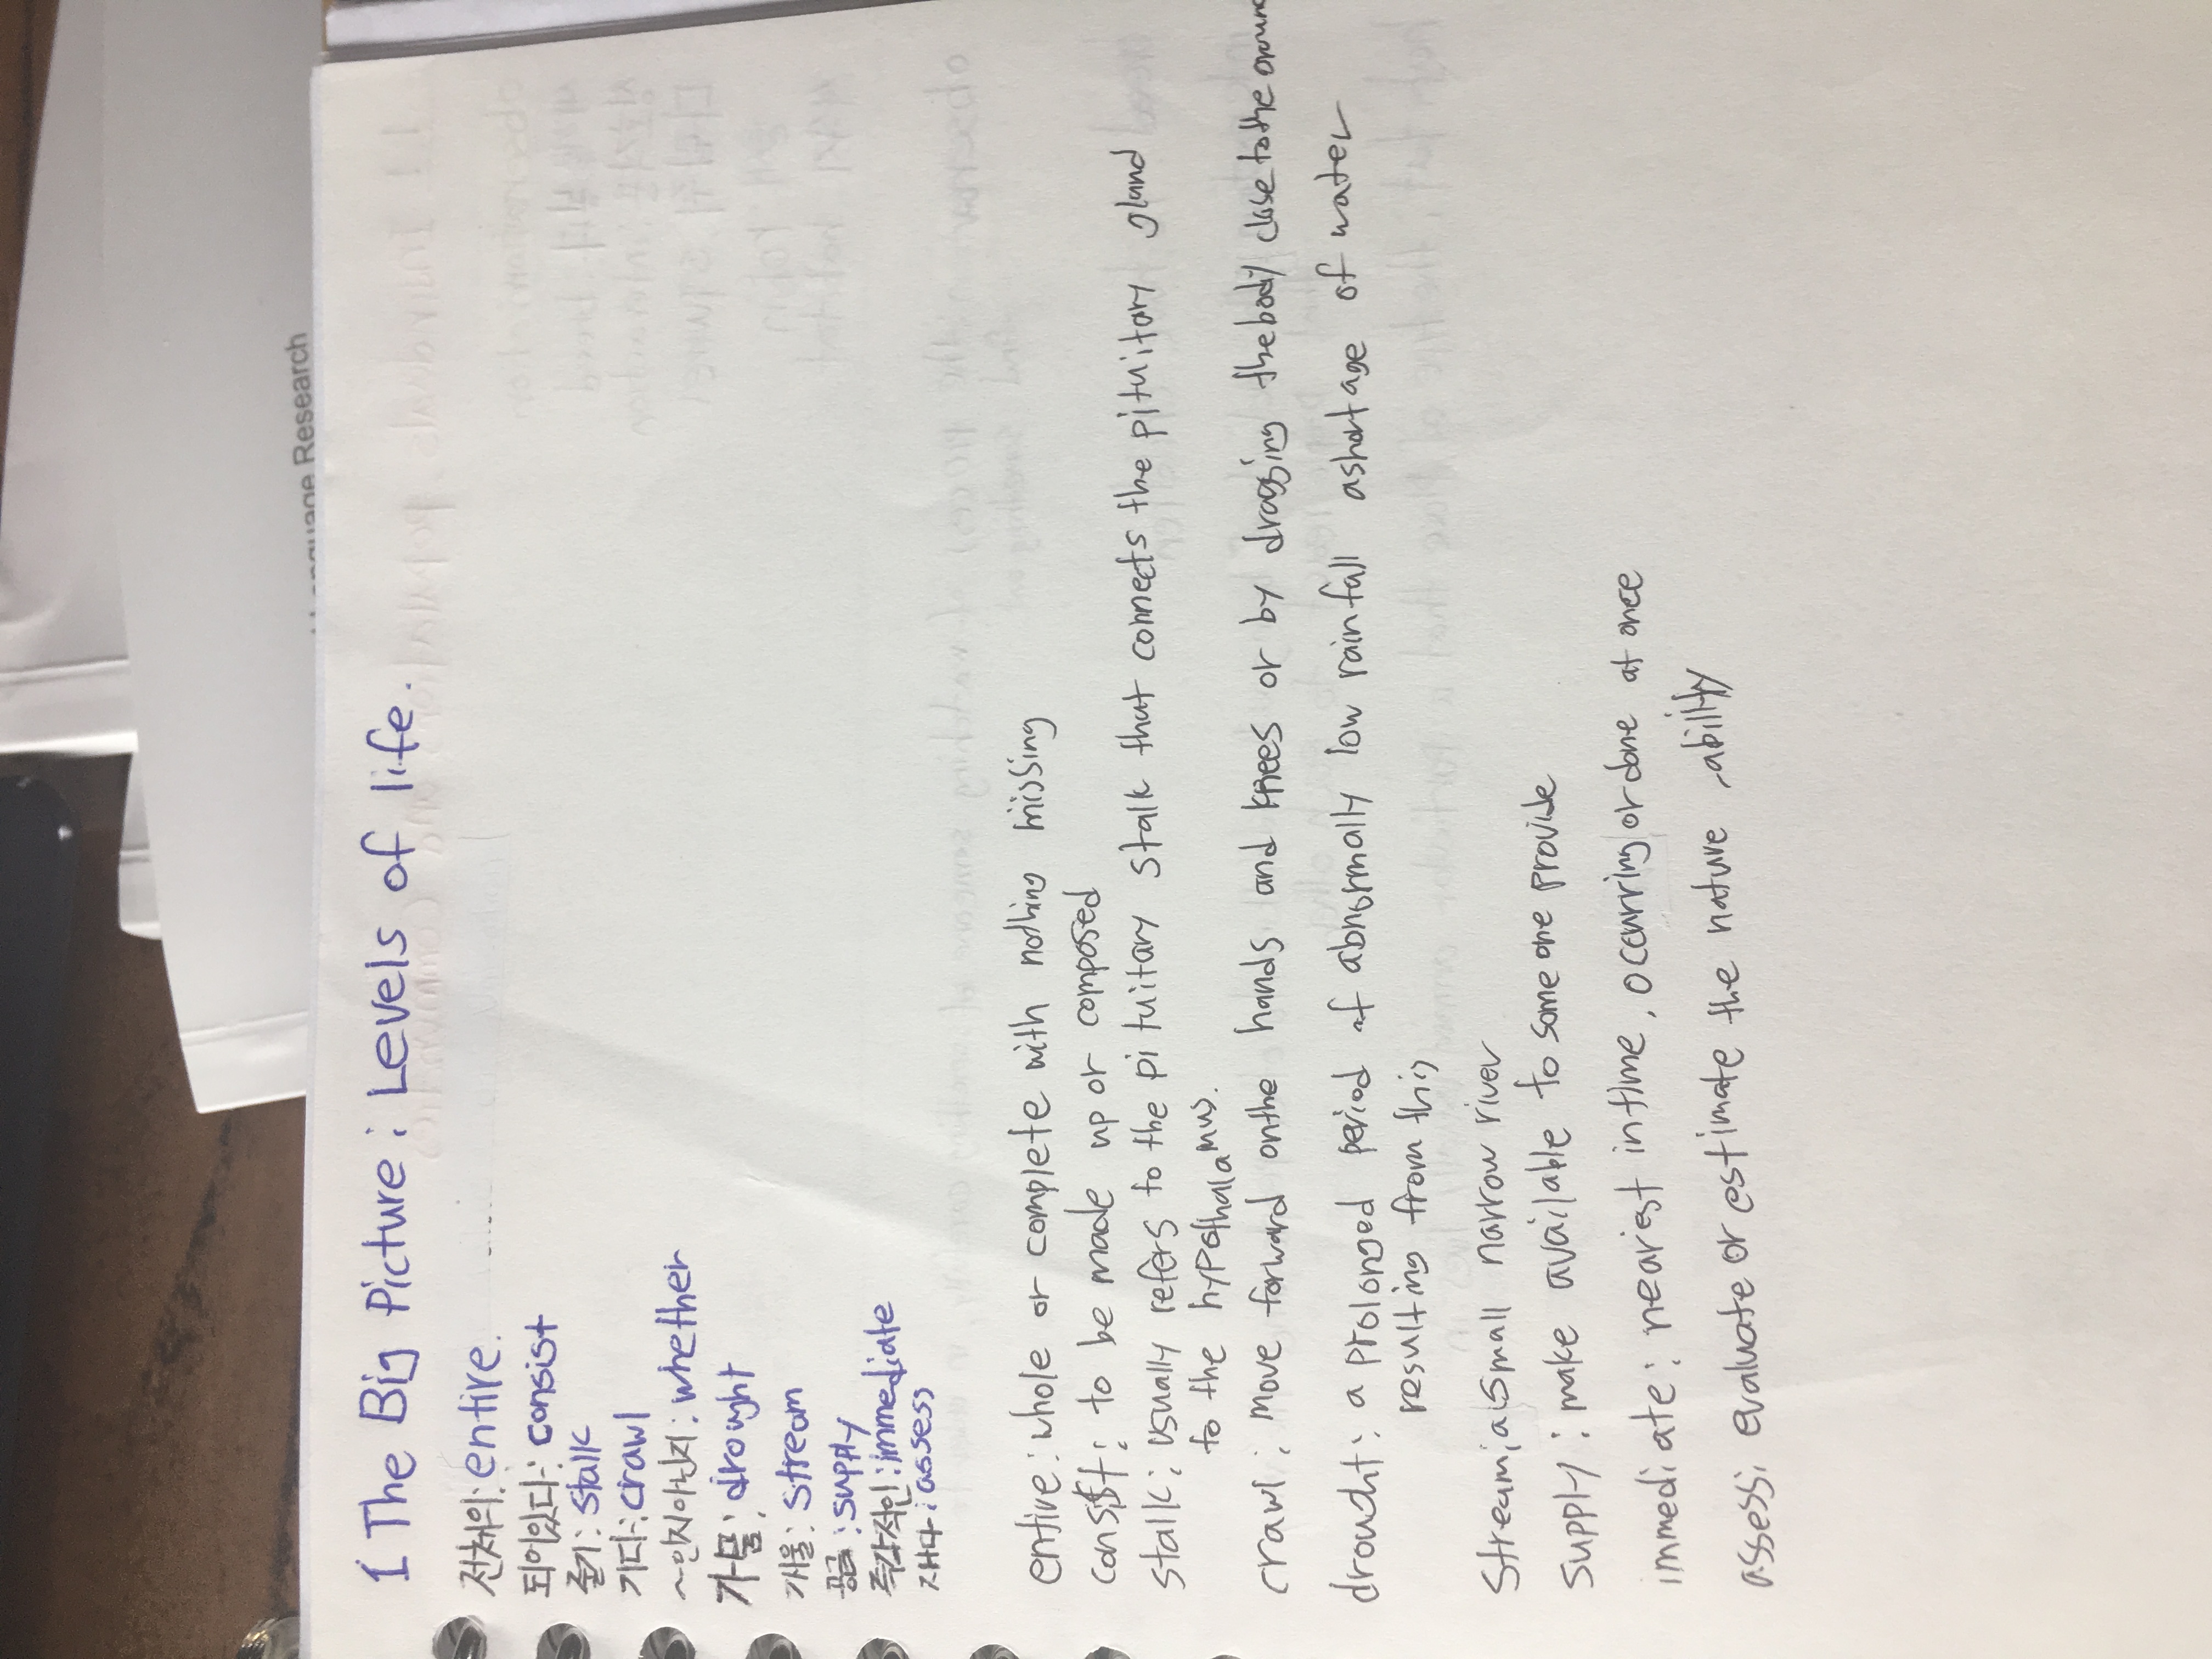 Language Research
1 The Big Picture : Levels of life.
전체의: entire.
되어있다: consist
줄기: stalk
기다: crawl
~인지 아닌지: whether
가뭄: drought
개울: stream
공급: supply
즉각적인: immediate
재다: assess
entire: whole or complete with nothing missing
consist: to be made up or composed
stalk: usually refers to the pituitary stalk that connects the pituitary gland
to the hypothalamus.
crawl: move forward on the hands and knees or by dragging the body close to the
drought: a prolonged period of abnormally low rainfall a shortage of water
resulting from this
Stream: a small narrow river
supply: make available to someone provise
immediate: neariest in time, occurring or done at once
assess: evaluate or estimate the nature, ability